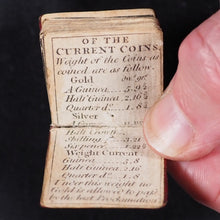 OF THE
CURRENT COINS.
Weight of the Coins as
coined are as follow.
Gold dw. gr.
A Guinea 5.9½
Half Guinea 2.16¾
Quarter d.º 1.8
Silver
A Crown
Half Crown
Shilling 3.21
Six pence 1.22
Weight Current
Guinea 5.8
Half Guinea 2.16
Quarter d.º 1.8
Under this weight no
Gold is allow'd to pass
by the last Proclamation